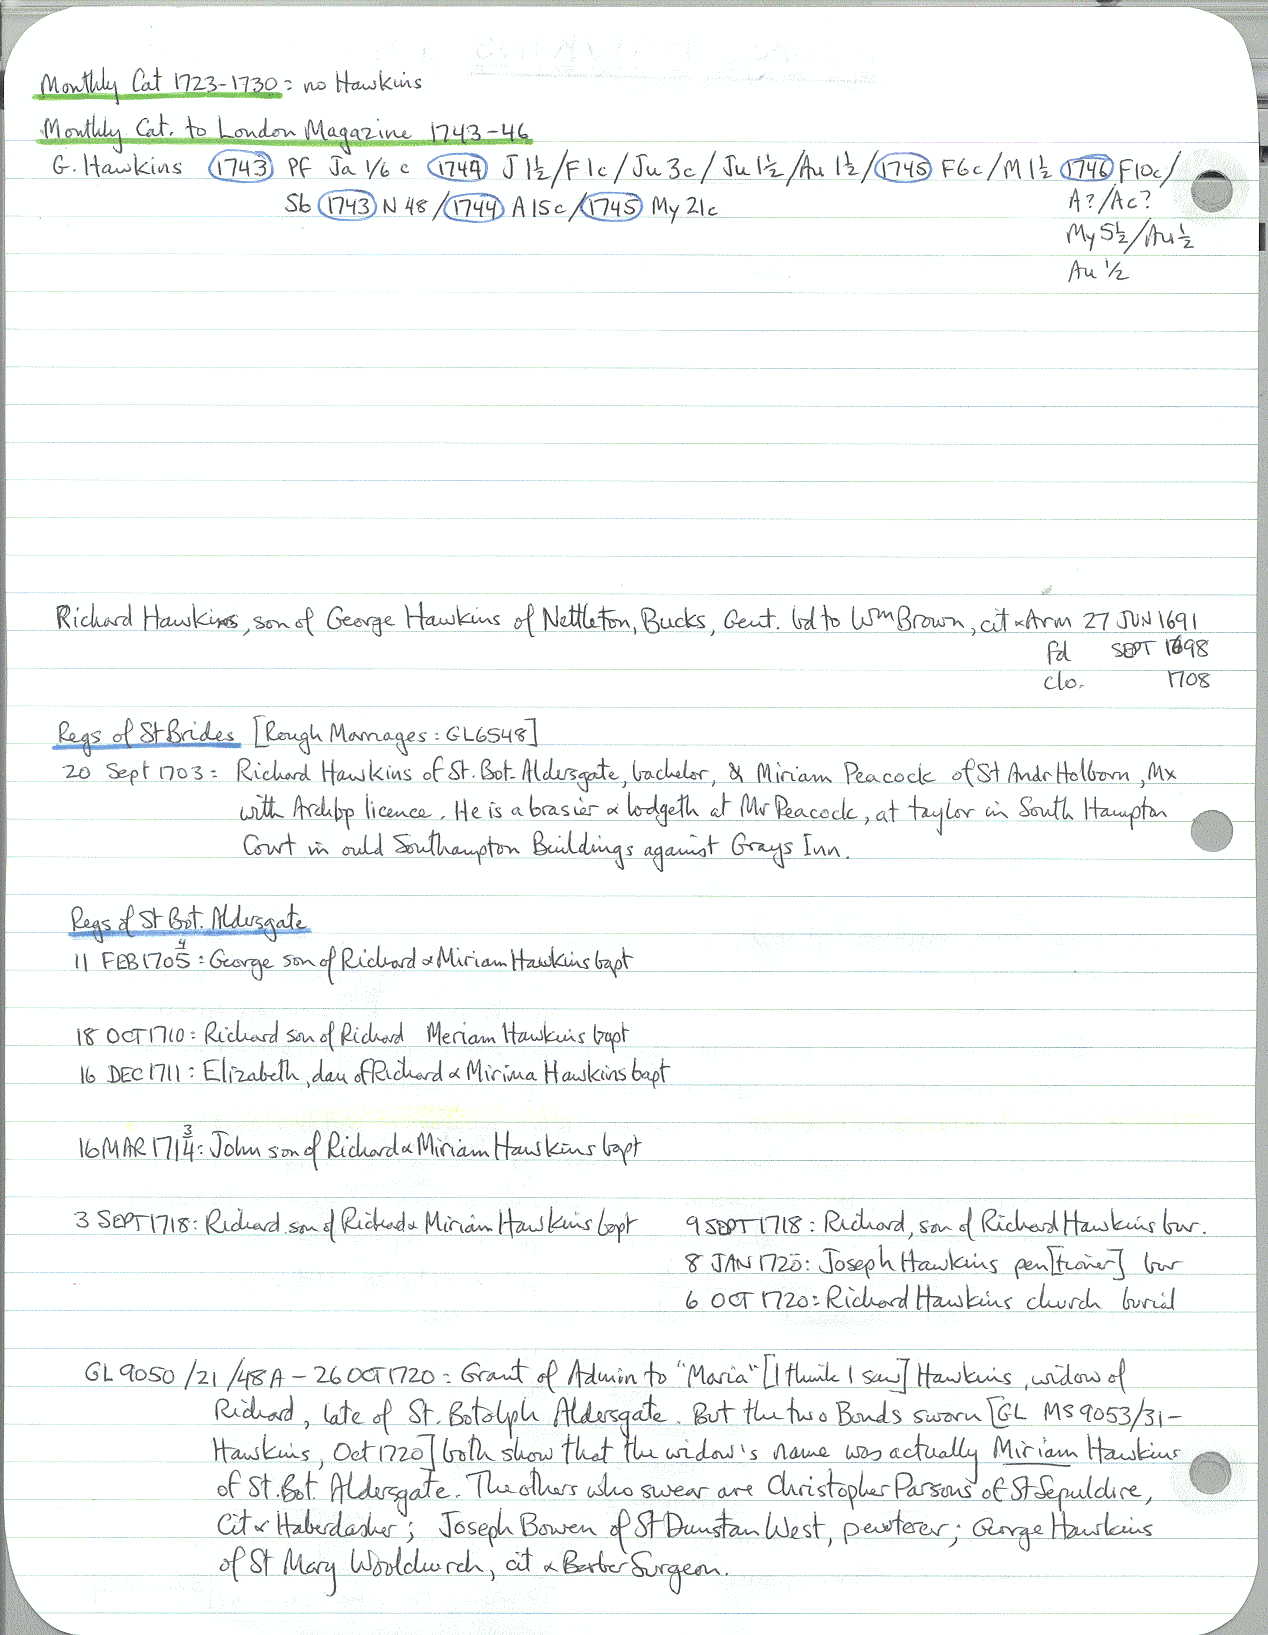 Monthly Cat 1723-1730 = no Hawkins
Monthly Cat. to London Magazine 1743-46
G. Hawkins 1743 Pf Ja 1/6 c 1744 J 1½/F1c/Ju 3c/Ju 1½/Au 1½/1745 F6c/M 1½ 1746 F10c/
Sb 1743 N 48/1744 A15c/1745 My 21c A?/Ac?
My 5½/Au ½
Au 1/2
Richard Hawkins, son of George Hawkins of Nettleton, Bucks, Gent. bd to Wm Brown, cit & Arm 27 JUN 1691
fd SEPT 1698
clo. 1708
Regs of St Brides [Rough Marriages: GL6548]
20 Sept 1703 = Richard Hawkins of St. Bot. Aldersgate, bachelor, & Miriam Peacock of St Andr Holborn, Mx
with Archbp licence. He is a brasier & lodgeth at Mr Peacock, at taylor in South Hampton
Court in ould Southampton Buildings against Grays Inn.
Regs of St Bot. Aldersgate
4
11 FEB 1705 : George son of Richard & Miriam Hawkins bapt
18 OCT 1710 : Richard son of Richard Meriam Hawkins bapt
16 DEC 1711 : Elizabeth, dau of Richard & Mirima Hawkins bapt
3
16 MAR 1714 : John son of Richard & Miriam Hawkins bapt
3 SEPT 1718 : Richard son of Richard & Miriam Hawkins bapt 9 SEPT 1718 : Richard, son of Richard Hawkins bur.
8 JAN 1720 : Joseph Hawkins pen[tioner] bur
6 OCT 1720 : Richard Hawkins church burial
GL 9050/21/48A - 26 OCT 1720 : Grant of Admin to "Maria" [I think I saw] Hawkins, widow of
Richard, late of St. Botolph Aldersgate. But the two Bonds sworn [GL MS 9053/31-
Hawkins, Oct 1720] both show that the widow's name was actually Miriam Hawkins
of St. Bot. Aldersgate. The others who swear are Christopher Parsons of St Sepulchre,
Cit & Haberdasher; Joseph Bowen of St Dunstan West, pewterer; George Hawkins
of St Mary Woolchurch, cit & Barber Surgeon.